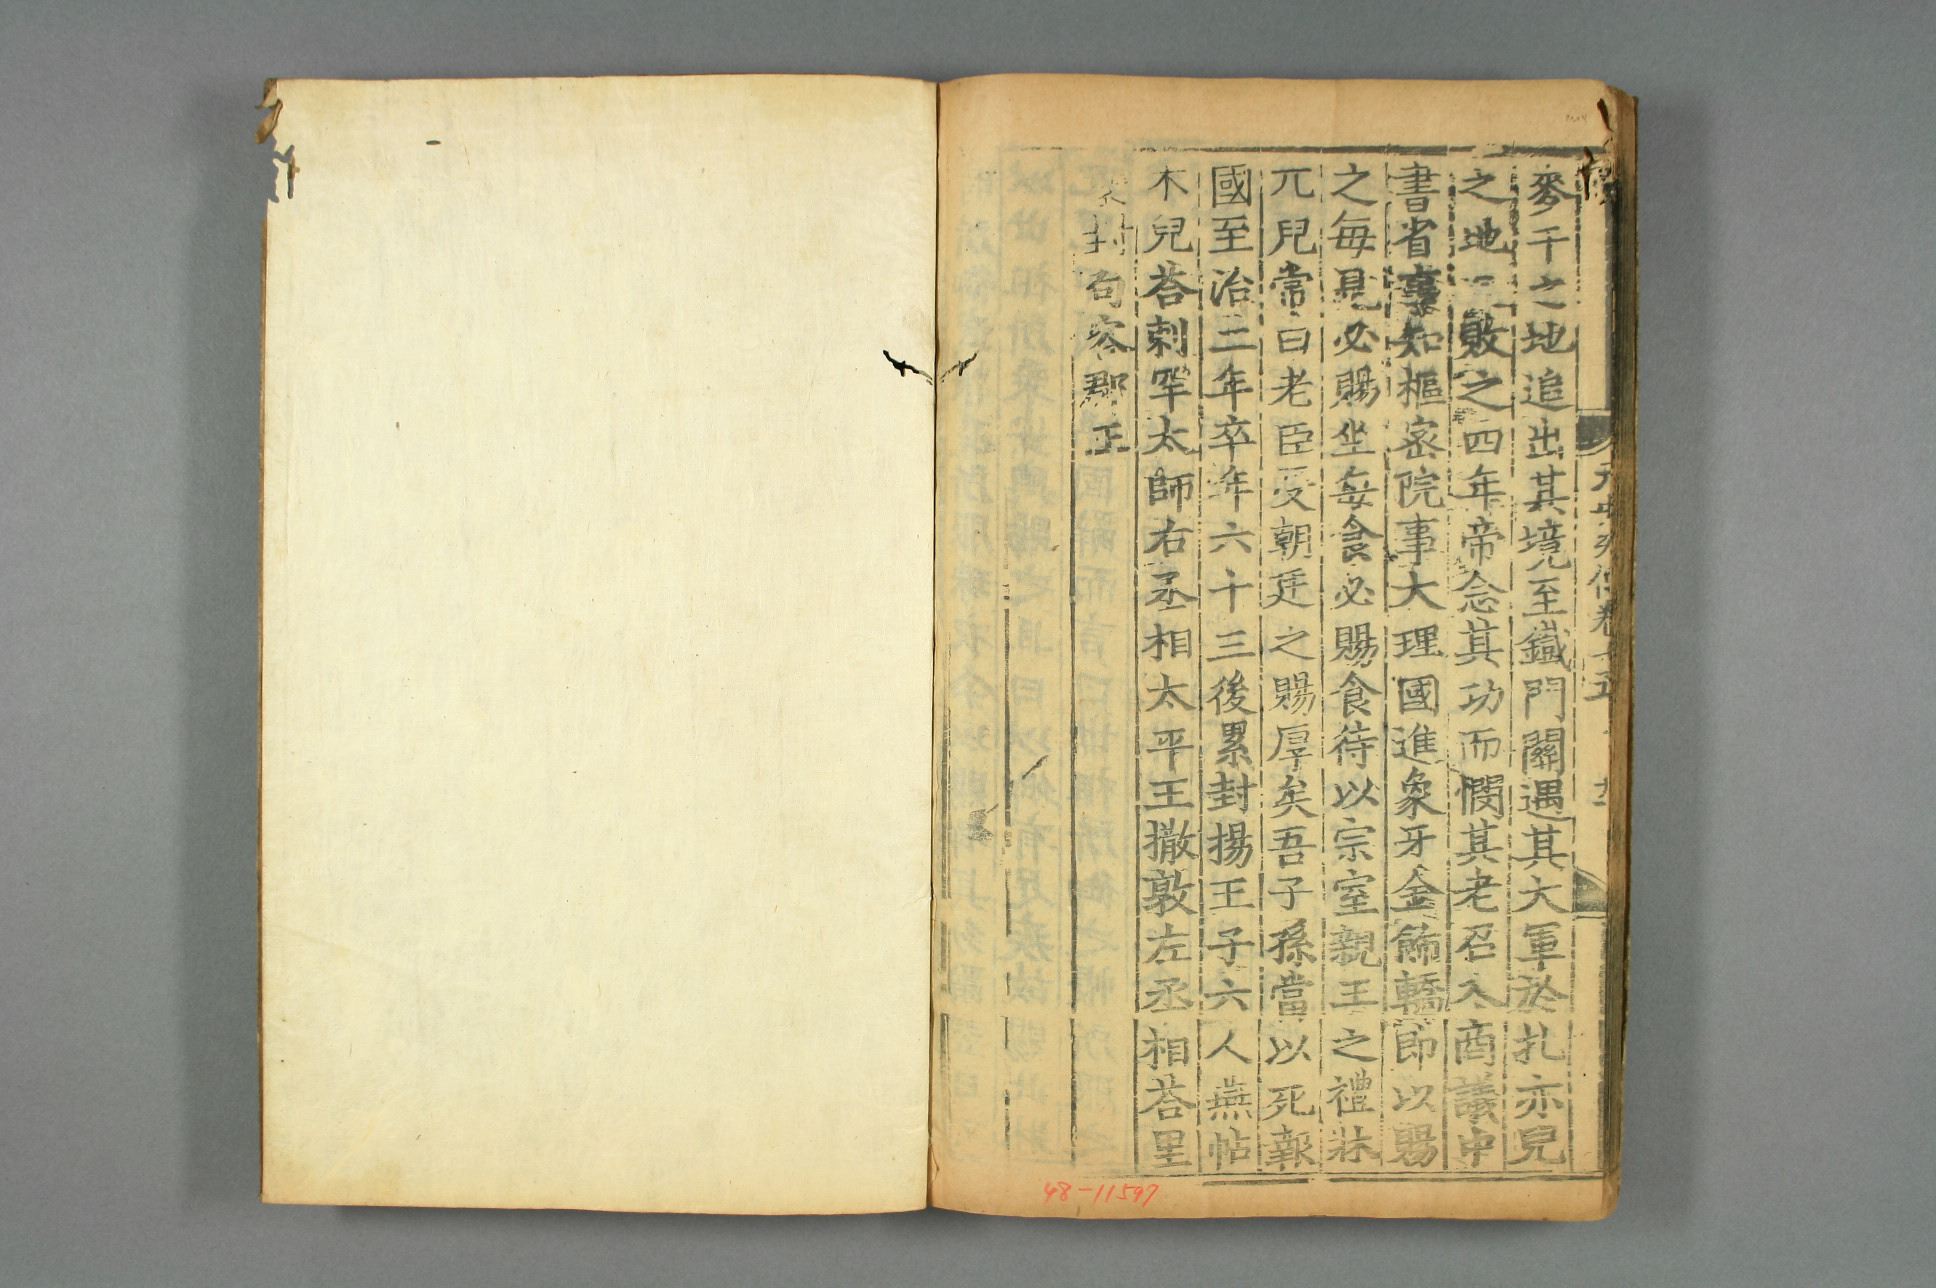 麥干之地追出其境至鐵門關遇其大軍於扎亦兒
之地又敗之四年帝念其功而憫其老召入商議中
書省事知樞密院事大理國進象牙金飾轎即以賜
之每見必賜坐每食必賜食待以宗室親王之禮牀
兀兒常曰老臣受朝廷之賜厚矣吾子孫當以死報
國至治二年卒年六十三後累封揚王子六人燕帖
木兒荅剌罕太師右丞相太平王撒敦左丞相荅里
封句容郡王
元史列傳卷十五
48-11597